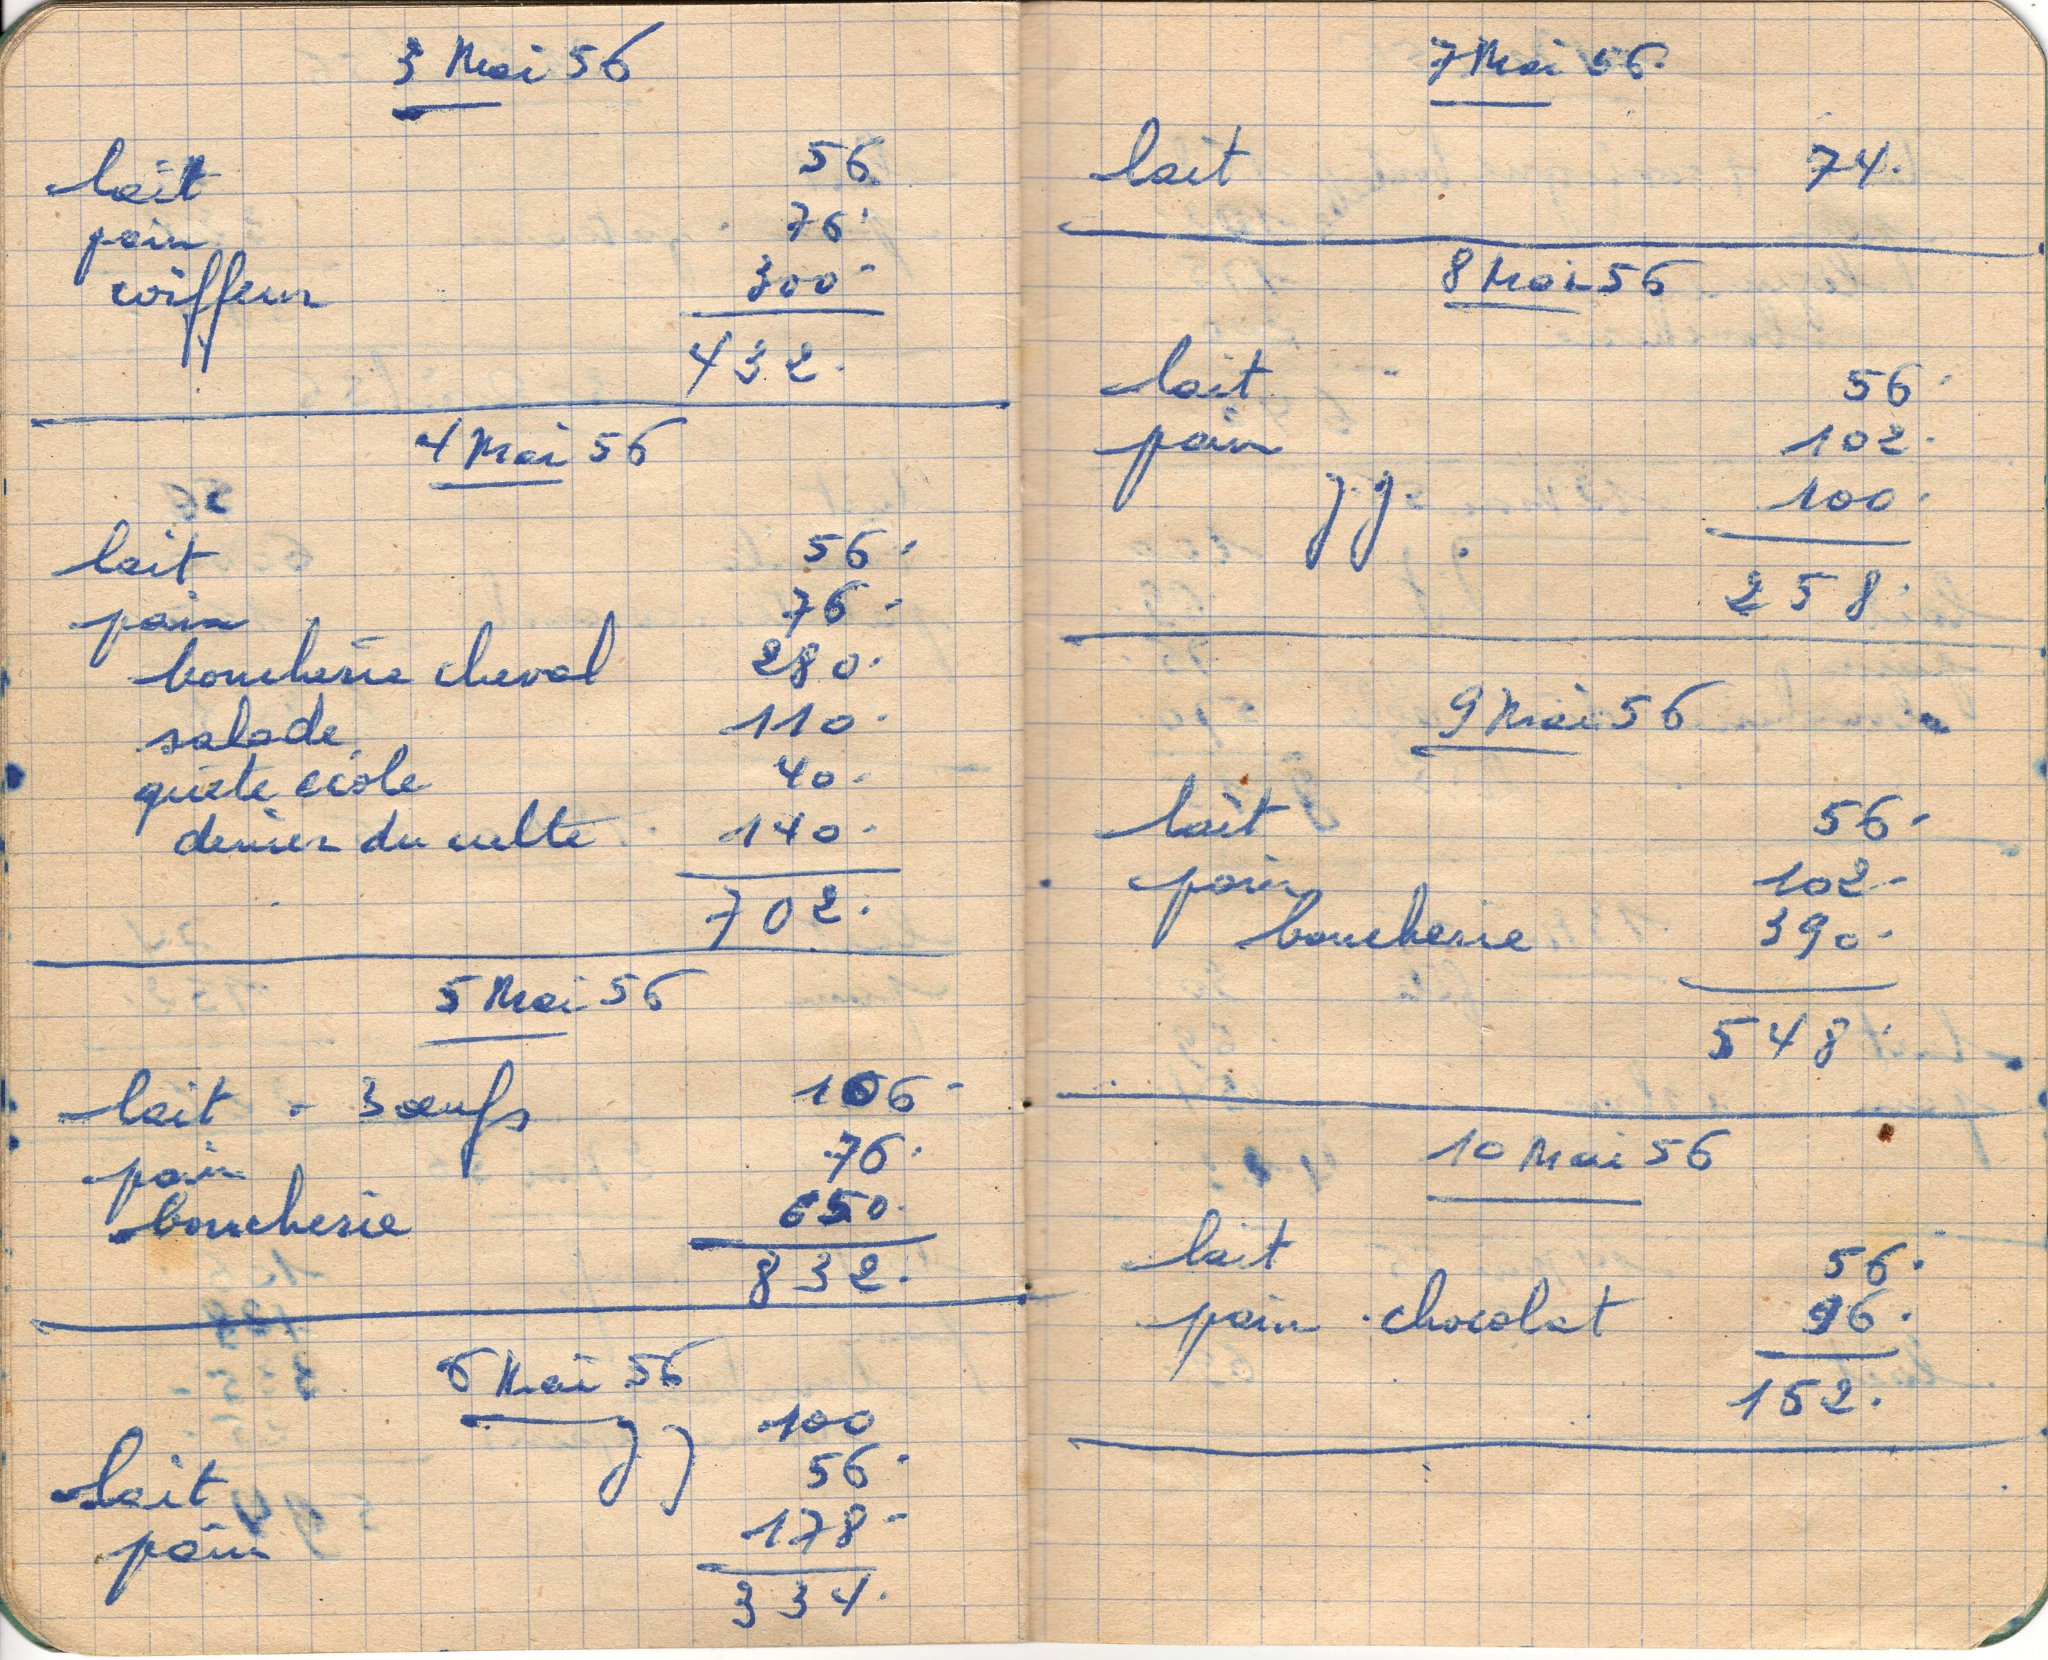 3 Mai 56
lait 56
pain 76.
coiffeur 300-
432.
4 Mai 56
lait 56.
pain 76-
boucherie cheval 280.
salade 110.
quete ecole 40.
denier du culte 140-
702.
5 Mai 56
lait - 3 œufs 106-
pain 76.
boucherie 650.
832.
6 Mai 56
JJ 100
lait 56.
pain 178-
334.
7 Mai 56.
lait 74.
8 Mai 56
lait 56.
pain 102.
JJ. 100.
258.
9 Mai 56
lait 56-
pain 102-
boucherie 390.
548.
10 Mai 56
lait 56.
pain . chocolat 96.
152.